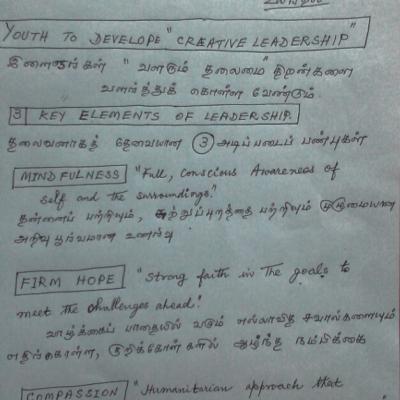 YOUTH TO DEVELOPE "CREATIVE LEADERSHIP"
இளைஞர்கள் "வளரும் தலைமை" திறன்களை
வளர்த்துக் கொள்ள வேண்டும்.
3 KEY ELEMENTS OF LEADERSHIP.
தலைவனாகத் தேவையான 3 அடிப்படைப் பண்புகள்
MINDFULNESS "Full, Conscious Awareness of
self and the surroundings."
தன்னைப் பற்றியும், சுற்றுப்புறத்தை பற்றியும் முழுமையான
அறிவு பூர்வமான உணர்வு
FIRM HOPE "Strong faith in The goals to
meet the challenges ahead!
வாழ்க்கைப் பாதையில் வரும் எல்லாவித சவால்களையும்
எதிர்கொள்ள, குறிக்கோள்களில் ஆழ்ந்த நம்பிக்கை
COMPASSION "Humanitarian approach that